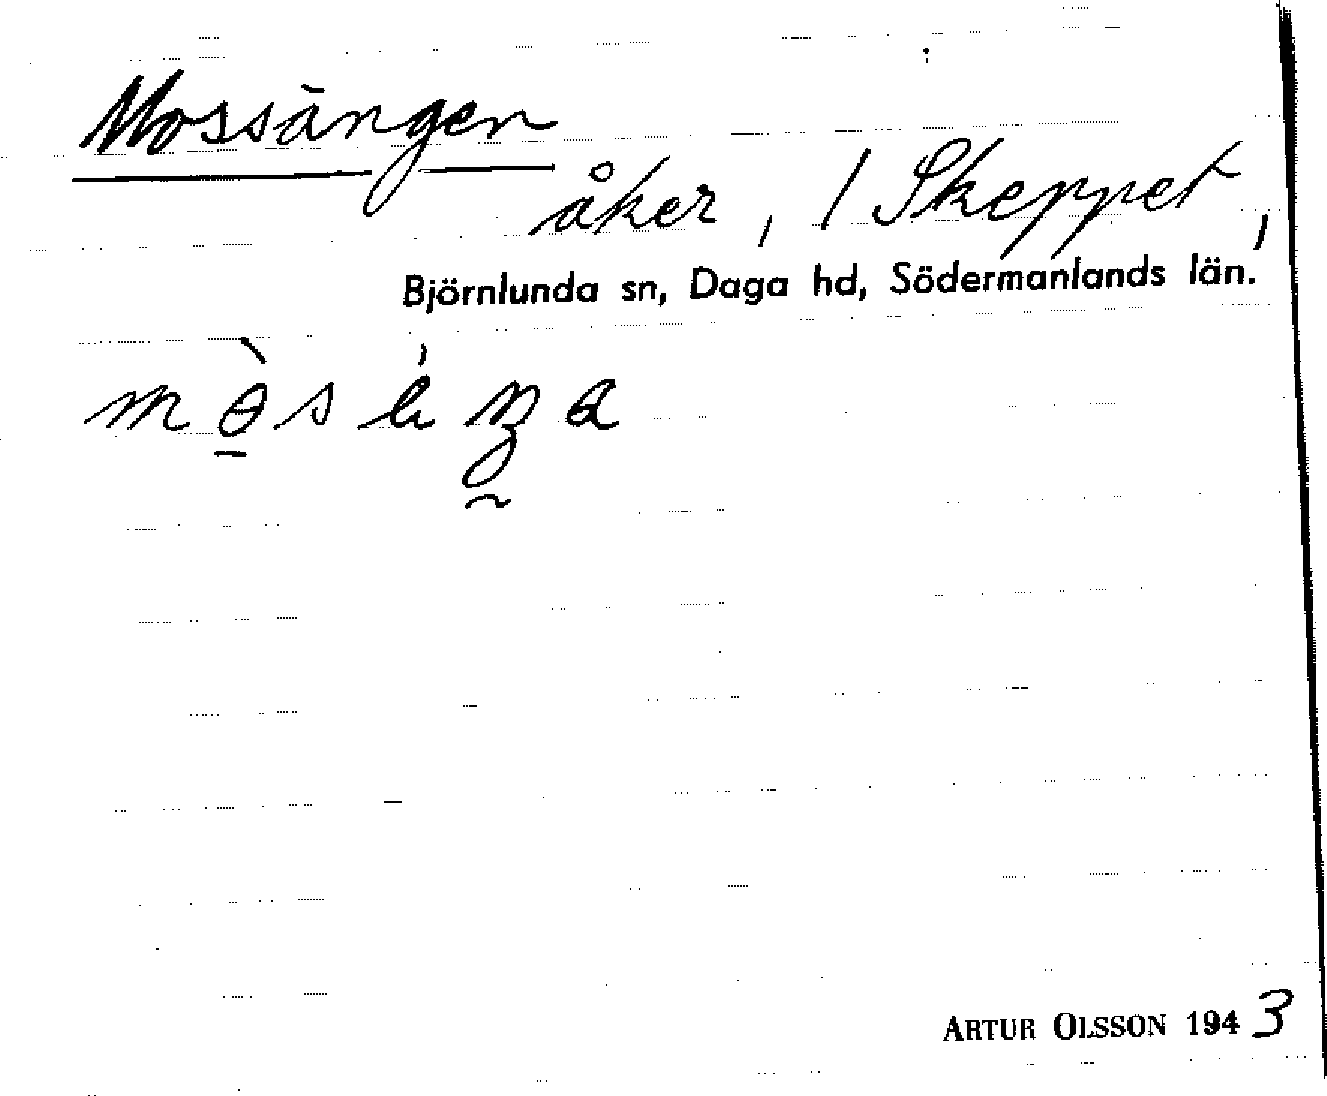 Mossängen
åker, / Skeppet,
Björnlunda sn, Daga hd, Södermanlands län.
ARTUR OLSSON 1943